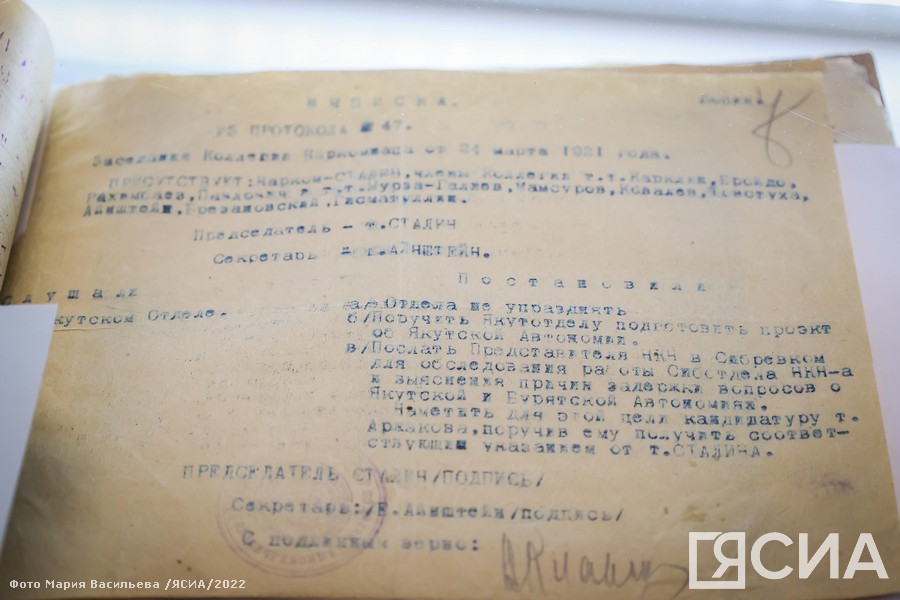 ВЫПИСКА.
Копия.
ИЗ ПРОТОКОЛА № 47.
Заседания Коллегии Наркомнаца от 24 марта 1921 года.
ПРИСУТСТВУЕТ: Нарком-СТАЛИН, члены Коллегии т.т. Карклин, Бройдо,
Рахимбаев, Павлович и т.т. Мурза-Галиев, Мамсуров, Ковалев,
Айнштейн, Брезановский, Гисматуллин.
Председатель - т. СТАЛИН
Секретарь - т. АЙНШТЕЙН.
Постановили
лушали
кутском Отделе.
а/ Отдела не упразднять
б/ Поручить Якутотделу подготовить проэкт
об Якутской Автономии.
в/ Послать Представителя НКН в Сибревком
для обследования работы Сиботдела НКН-а
и выяснения причин задержки вопросов о
Якутской и Бурятской Автономиях.
Наметить для этой цели кандидатуру т.
Аржакова, поручив ему получить соответ-
ствующим указанием от т. СТАЛИНА.
ПРЕДСЕДАТЕЛЬ СТАЛИН /ПОДПИСЬ/
Секретарь: /Е. Айнштейн /подпись/
С подлинным верно:
ЯСИА
Фото Мария Васильева /ЯСИА/2022